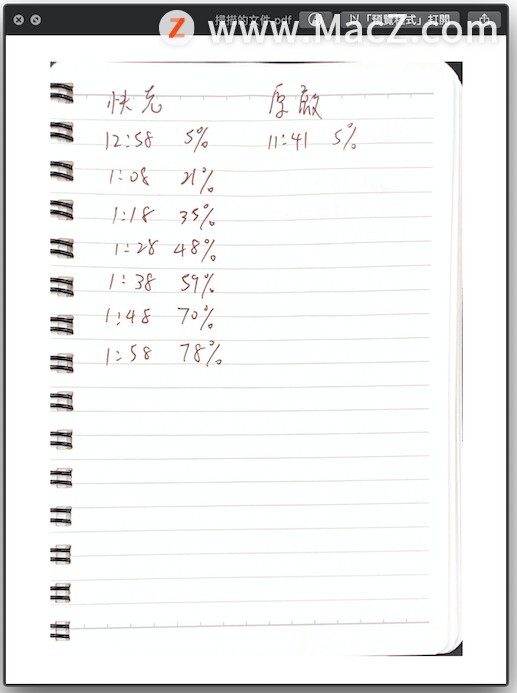 掃描的文件.pdf
以「預覽程式」打開
www.MacZ.com
快充 原廠
12:58 5% 11:41 5%
1:08 21%
1:18 35%
1:28 48%
1:38 59%
1:48 70%
1:58 78%